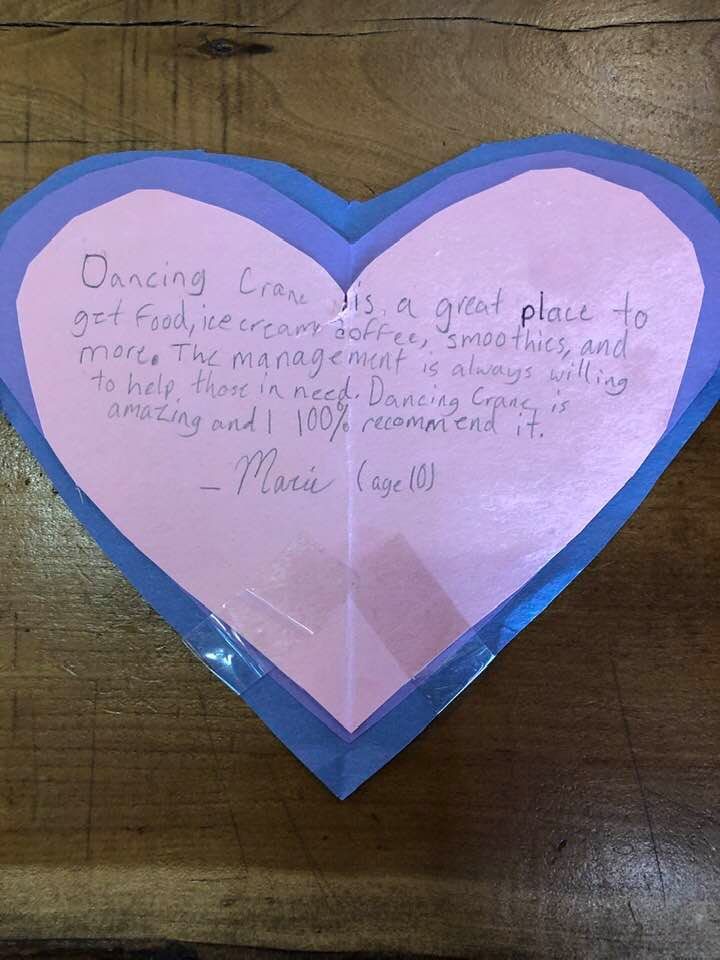 Dancing Crane is a great place to
get food, ice cream, coffee, smoothies, and
more. The management is always willing
to help those in need. Dancing Crane is
amazing and I 100% recommend it.
- Marie (age 10)